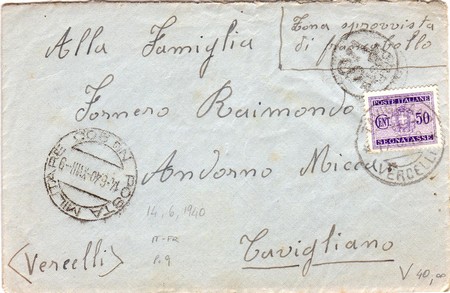 Alla Famiglia
Zona sprovvista
di francobollo
Fornero Raimondo
POSTE ITALIANE
CENT. 50
SEGNATASSE
VERCELLI
POSTA MILITARE
14.6.40-XVIII-9
Andorno Micca
14, 6, 1940
IT-FR
P.9
Tavigliano
(Vercelli)
V 40,00